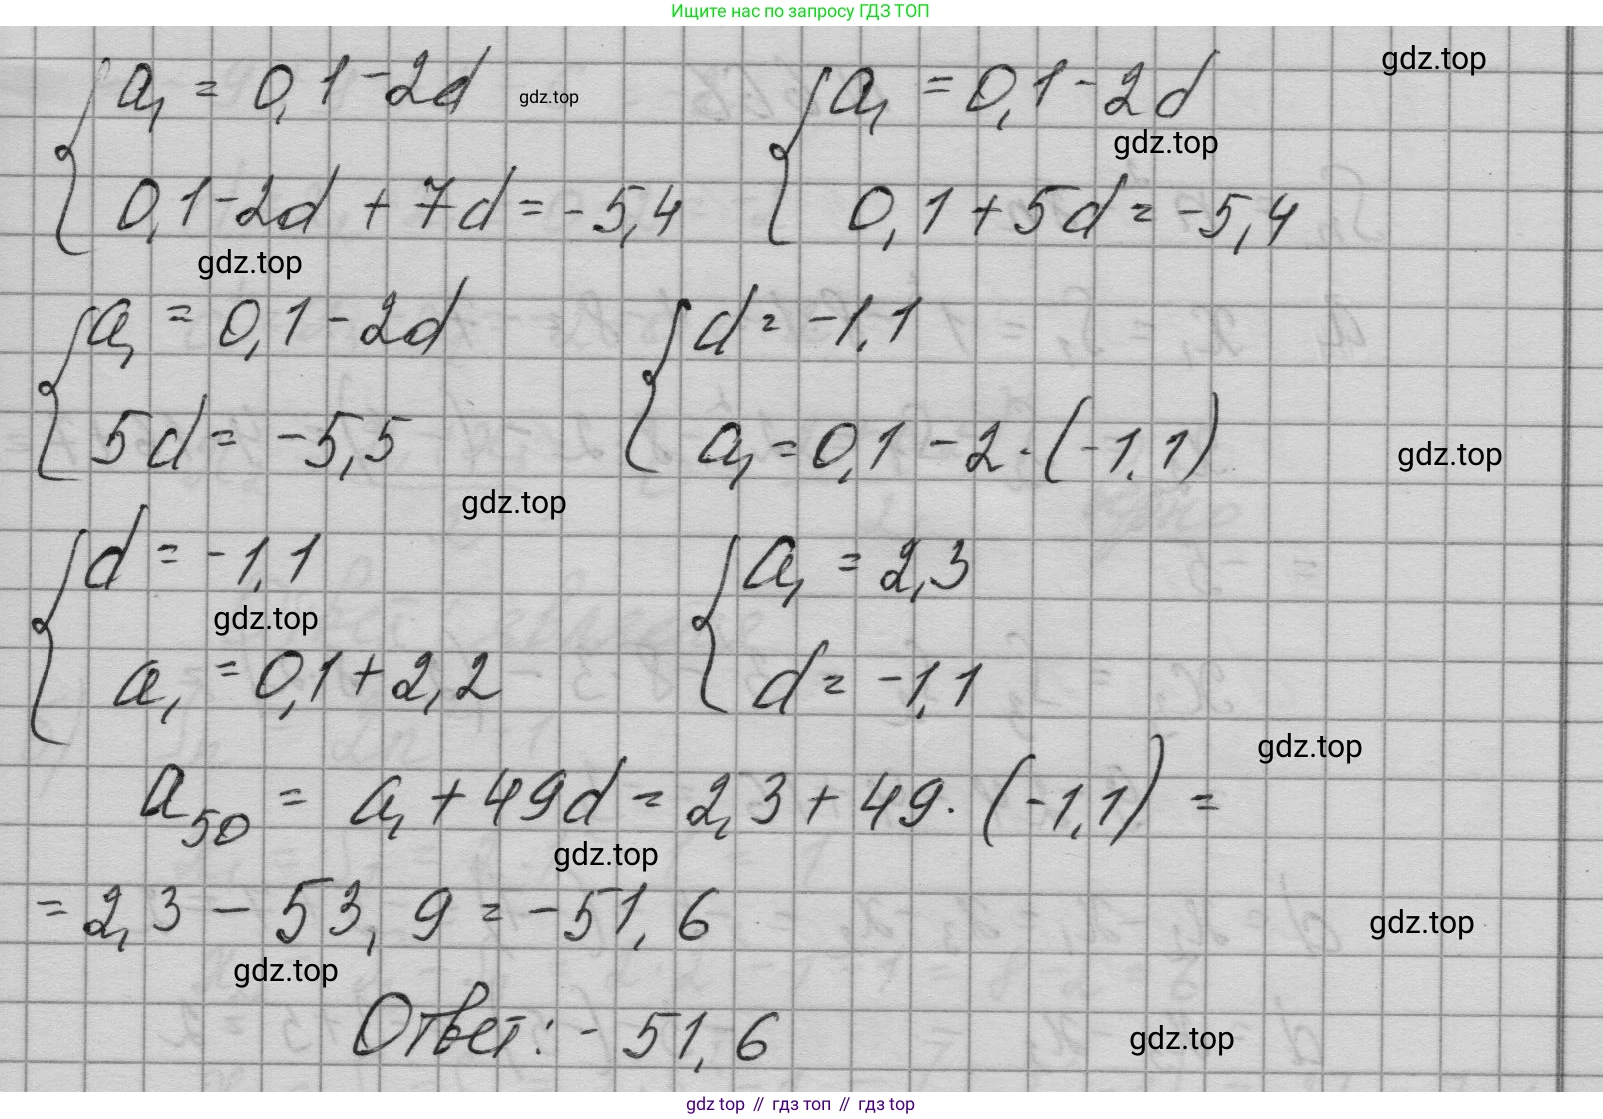 Ищите нас по запросу ГДЗ ТОП
a₁ = 0,1 - 2d gdz.top a₁ = 0,1 - 2d gdz.top
gdz.top
0,1 - 2d + 7d = -5,4 0,1 + 5d = -5,4
gdz.top
a₁ = 0,1 - 2d d = -1,1
5d = -5,5 a₁ = 0,1 - 2 · (-1,1) gdz.top
gdz.top
d = -1,1 a₁ = 2,3
gdz.top
a₁ = 0,1 + 2,2 d = -1,1
gdz.top
a₅₀ = a₁ + 49d = 2,3 + 49 · (-1,1) =
gdz.top
= 2,3 - 53,9 = -51,6 gdz.top
gdz.top
Ответ: -51,6 gdz.top
gdz top // гдз топ // gdz top